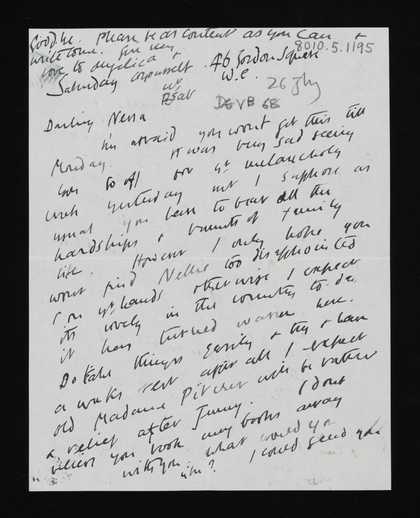 Goodbye. Please be as content as you can &
write to me. Give my
love to Angelica &
8010.5.1195
Saturday 46 Gordon Square
W.C.
26 July
DGVB 68
Darling Nessa
I'm afraid you won't get this till
Monday. It was very sad seeing
you to off on yr melancholy
yesterday but I suppose as
usual you have to bear all the
hardships & of family
life. However I only hope you
won't find Nellie too disappointed
on yr hands otherwise I expect
its lovely in the country to-day
it has turned warm here.
Do take things easily & try & have
a weeks rest after all I expect
old Madame will be rather
a relief after Jenny. I dont
believe you took any books away
with you, what would you
like? I could send you